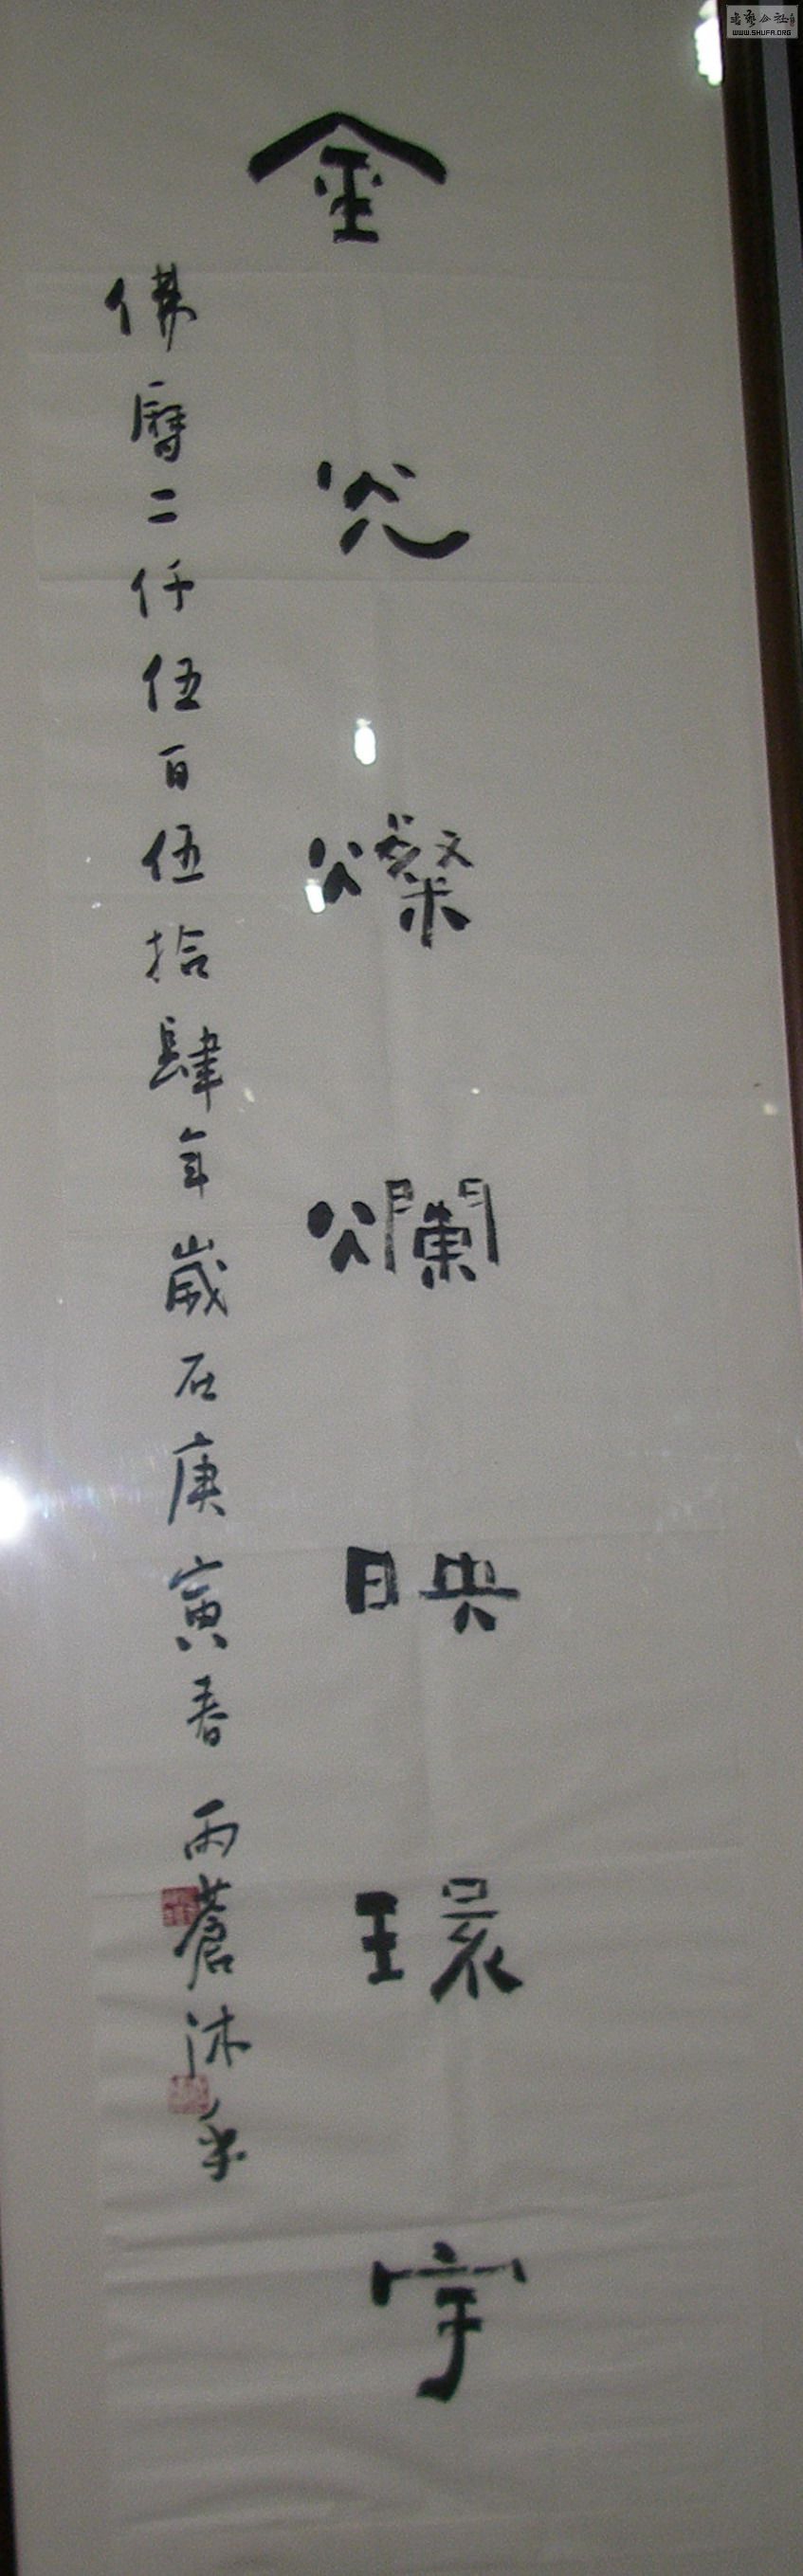 金光燦爛映環宇
佛曆二仟伍百伍拾肆年歲在庚寅春雨蒼沐手
WWW.SHUFA.ORG